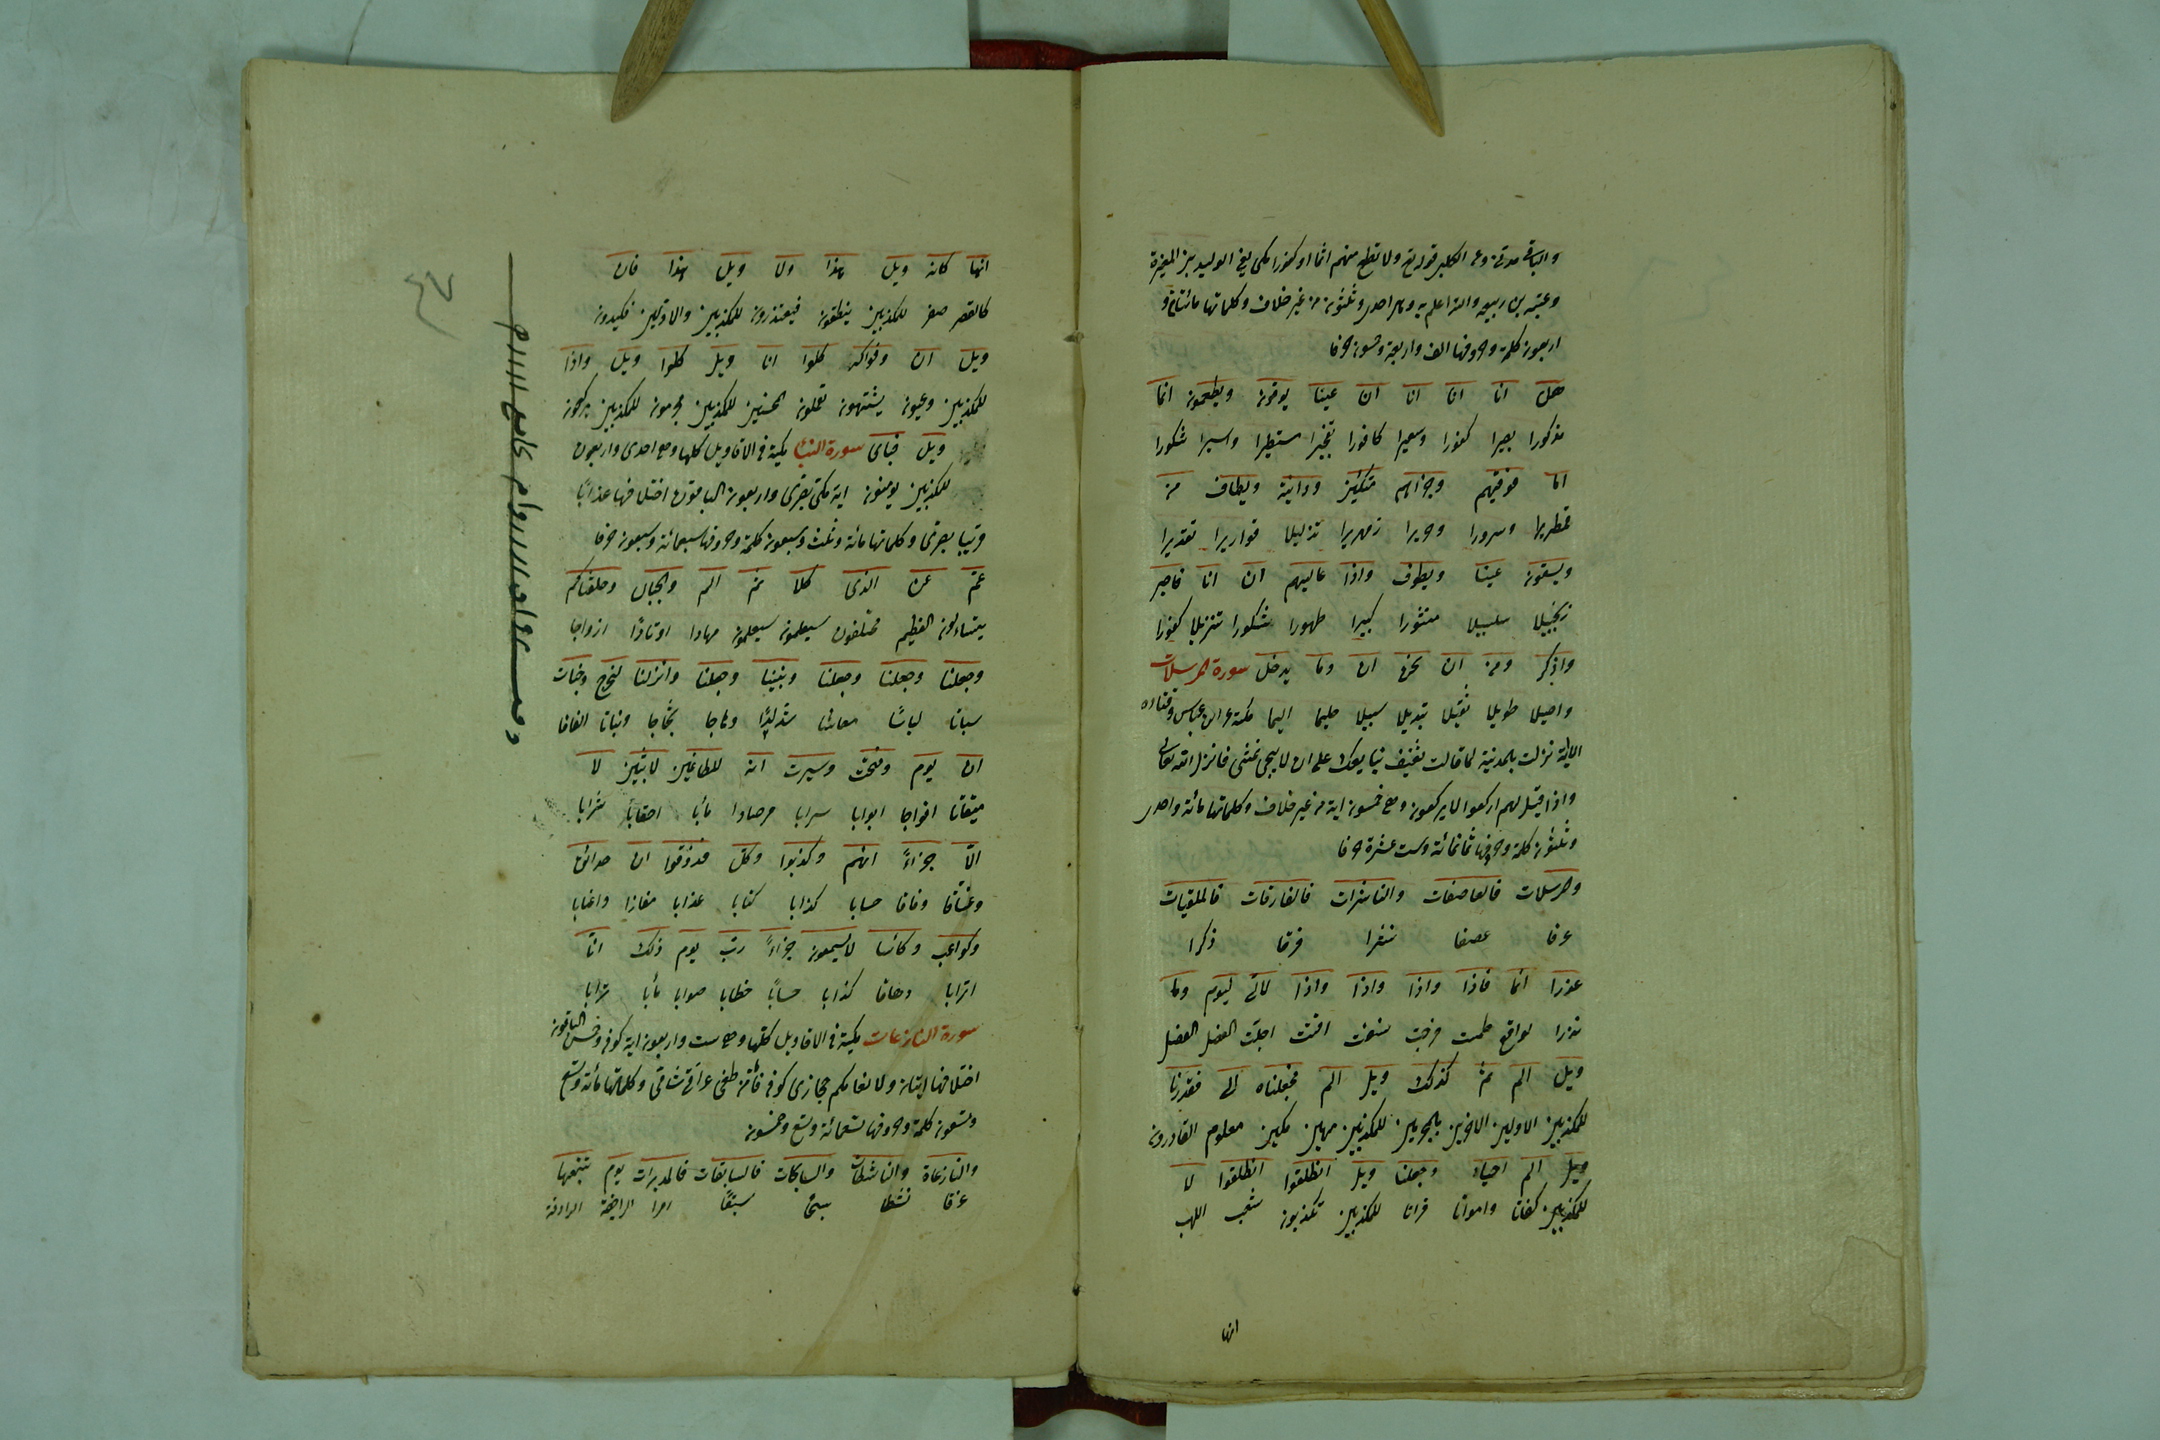 والباقي مدني وعن الكلبي قوله تع ولا تطع منهم اثما او كفورا مكي يعني الوليد بن المغيرة
وعتبة بن ربيعة والله اعلم به وهي احدى وثلثون من غير خلاف وكلماتها مائتان و
اربعون كلمة وحروفها الف واربعة وخمسون حرفا
هل انا انا انا ان عينا يوفون ويطعمون انما
مذكورا بصيرا كفورا وسعيرا كافورا تفجيرا مستطيرا واسيرا شكورا
انا فوقيهم وجزاهم متكئين ودانية ويطاف من
قمطريرا وسرورا وحريرا زمهريرا تذليلا قواريرا تقديرا
ويسقون عينا ويطوف واذا عاليهم ان انا فاصبر
زنجبيلا سلسبيلا منثورا كبيرا طهورا شكورا تنزيلا كفورا
واذكر ومن ان نحن ان وما يدخل سورة المرسلات
واصيلا طويلا ثقيلا تبديلا سبيلا حكيما اليما مكية عن ابن عباس وقتاده
الا اية نزلت بالمدينة لما قالت ثقيف نبايعك على ان لا فانزل الله تعالى
واذا قيل لهم اركعوا لا يركعون وهي خمسون اية من غير خلاف وكلماتها مائة واحدى
وثلثون كلمة وحروفها ثمانمائة وست عشرة حرفا
والمرسلات فالعاصفات والناشرات فالفارقات فالملقيات
عرفا عصفا نشرا فرقا ذكرا
عذرا انما فاذا واذا واذا واذا لاي ليوم وما
نذرا لواقع طمست فرجت نسفت اقتت اجلت الفصل الفصل
ويل الم ثم كذلك ويل الم فجعلناه الى فقدرنا
للمكذبين الاولين الاخرين بالمجرمين للمكذبين مهين مكين معلوم القادرون
ويل الم احياء وجعلنا ويل انطلقوا انطلقوا لا
للمكذبين كفاتا وامواتا فراتا للمكذبين تكذبون شعب اللهب
انها
انها كانه ويل هذا ولا ويل هذا فان
كالقصر صفر للمكذبين ينطقون فيعتذرون للمكذبين والاولين فكيدون
ويل ان وفواكه كلوا انا ويل كلوا ويل واذا
للمكذبين وعيون يشتهون تعملون المحسنين للمكذبين مجرمون للمكذبين يركعون
ويل فباي سورة النبأ مكية في الاقاويل كلها وهي احدى واربعون
للمكذبين يومنون اية مكي بصري واربعون الباقون اختلافها عذابا
قريبا بصري وكلماتها مائة وثلث وسبعون كلمة وحروفها سبعمائة وسبعون حرفا
عم عن الذي كلا ثم الم والجبال وخلقناكم
يتساءلون العظيم مختلفون سيعلمون سيعلمون مهادا اوتادا ازواجا
وجعلنا وجعلنا وجعلنا وبنينا وجعلنا وانزلنا لنخرج وجنات
سباتا لباسا معاشا شدادا وهاجا ثجاجا ونباتا الفافا
ان يوم وفتحت وسيرت ان للطاغين لابثين لا
ميقاتا افواجا ابوابا سرابا مرصادا مآبا احقابا شرابا
الا جزاء انهم وكذبوا وكل فذوقوا ان حدائق
وغساقا وفاقا حسابا كذابا كتابا عذابا مفازا واعنابا
وكواعب وكاسا لا يسمعون جزاء رب يوم ذلك انا
اترابا دهاقا كذابا حسابا خطابا صوابا مآبا ترابا
سورة النازعات مكية في الاقاويل كلها وهي ست واربعون اية كوفي وخمس الباقون
اختلافها اثنان ولانعامكم حجازي كوفي فاما من طغى عراقي شامي وكلماتها مائة وتسع
وتسعون كلمة وحروفها تسعمائة وتسع وخمسون
والنازعاة والناشطات والسابحات فالسابقات فالمدبرات يوم تتبعها
غرقا نشطا سبحا سبقا امرا الراجفة الرادفة
٤٧